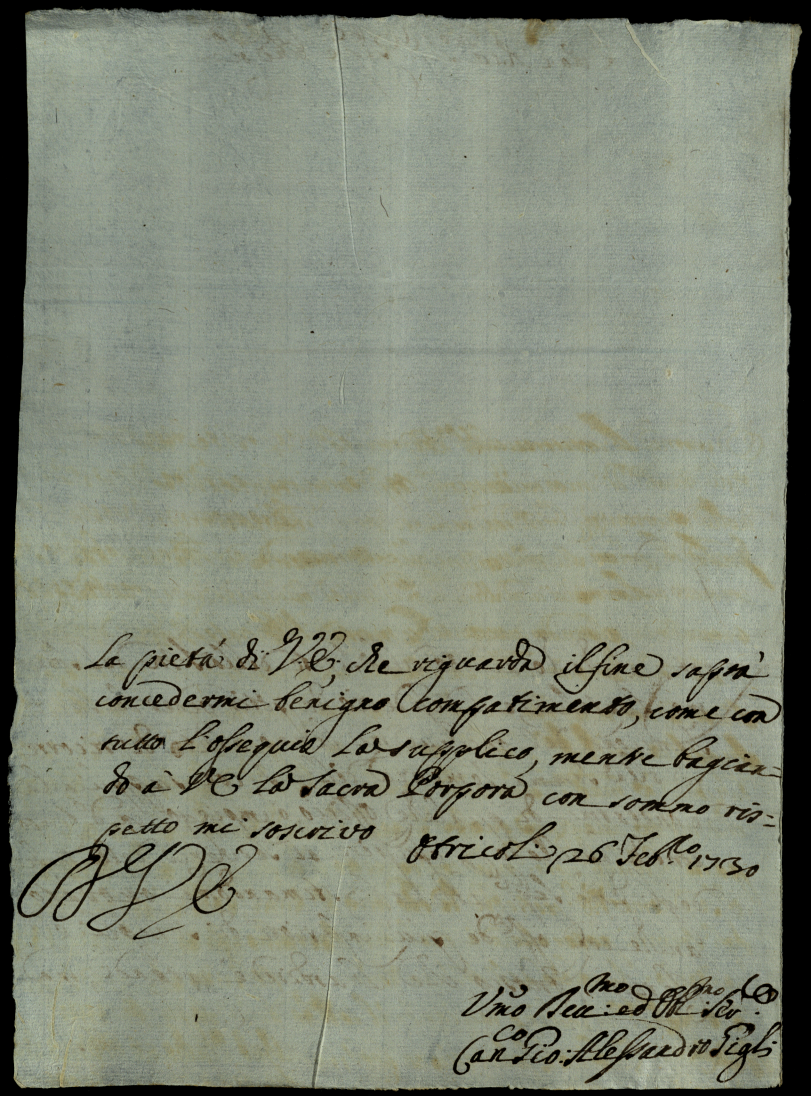 La pietà di V.E. che riguarda il fine saprà
concedermi benigno compatimento, come con
tutto l'ossequio La supplico, mentre bacian=
do à VE la Sacra Porpora con sommo ris=
petto mi soscrivo Otricoli 26 Feb.ro 1730
Umo Dev.mo ed Obl.mo Ser.e
Can.co Gio: Alessandro Gigli